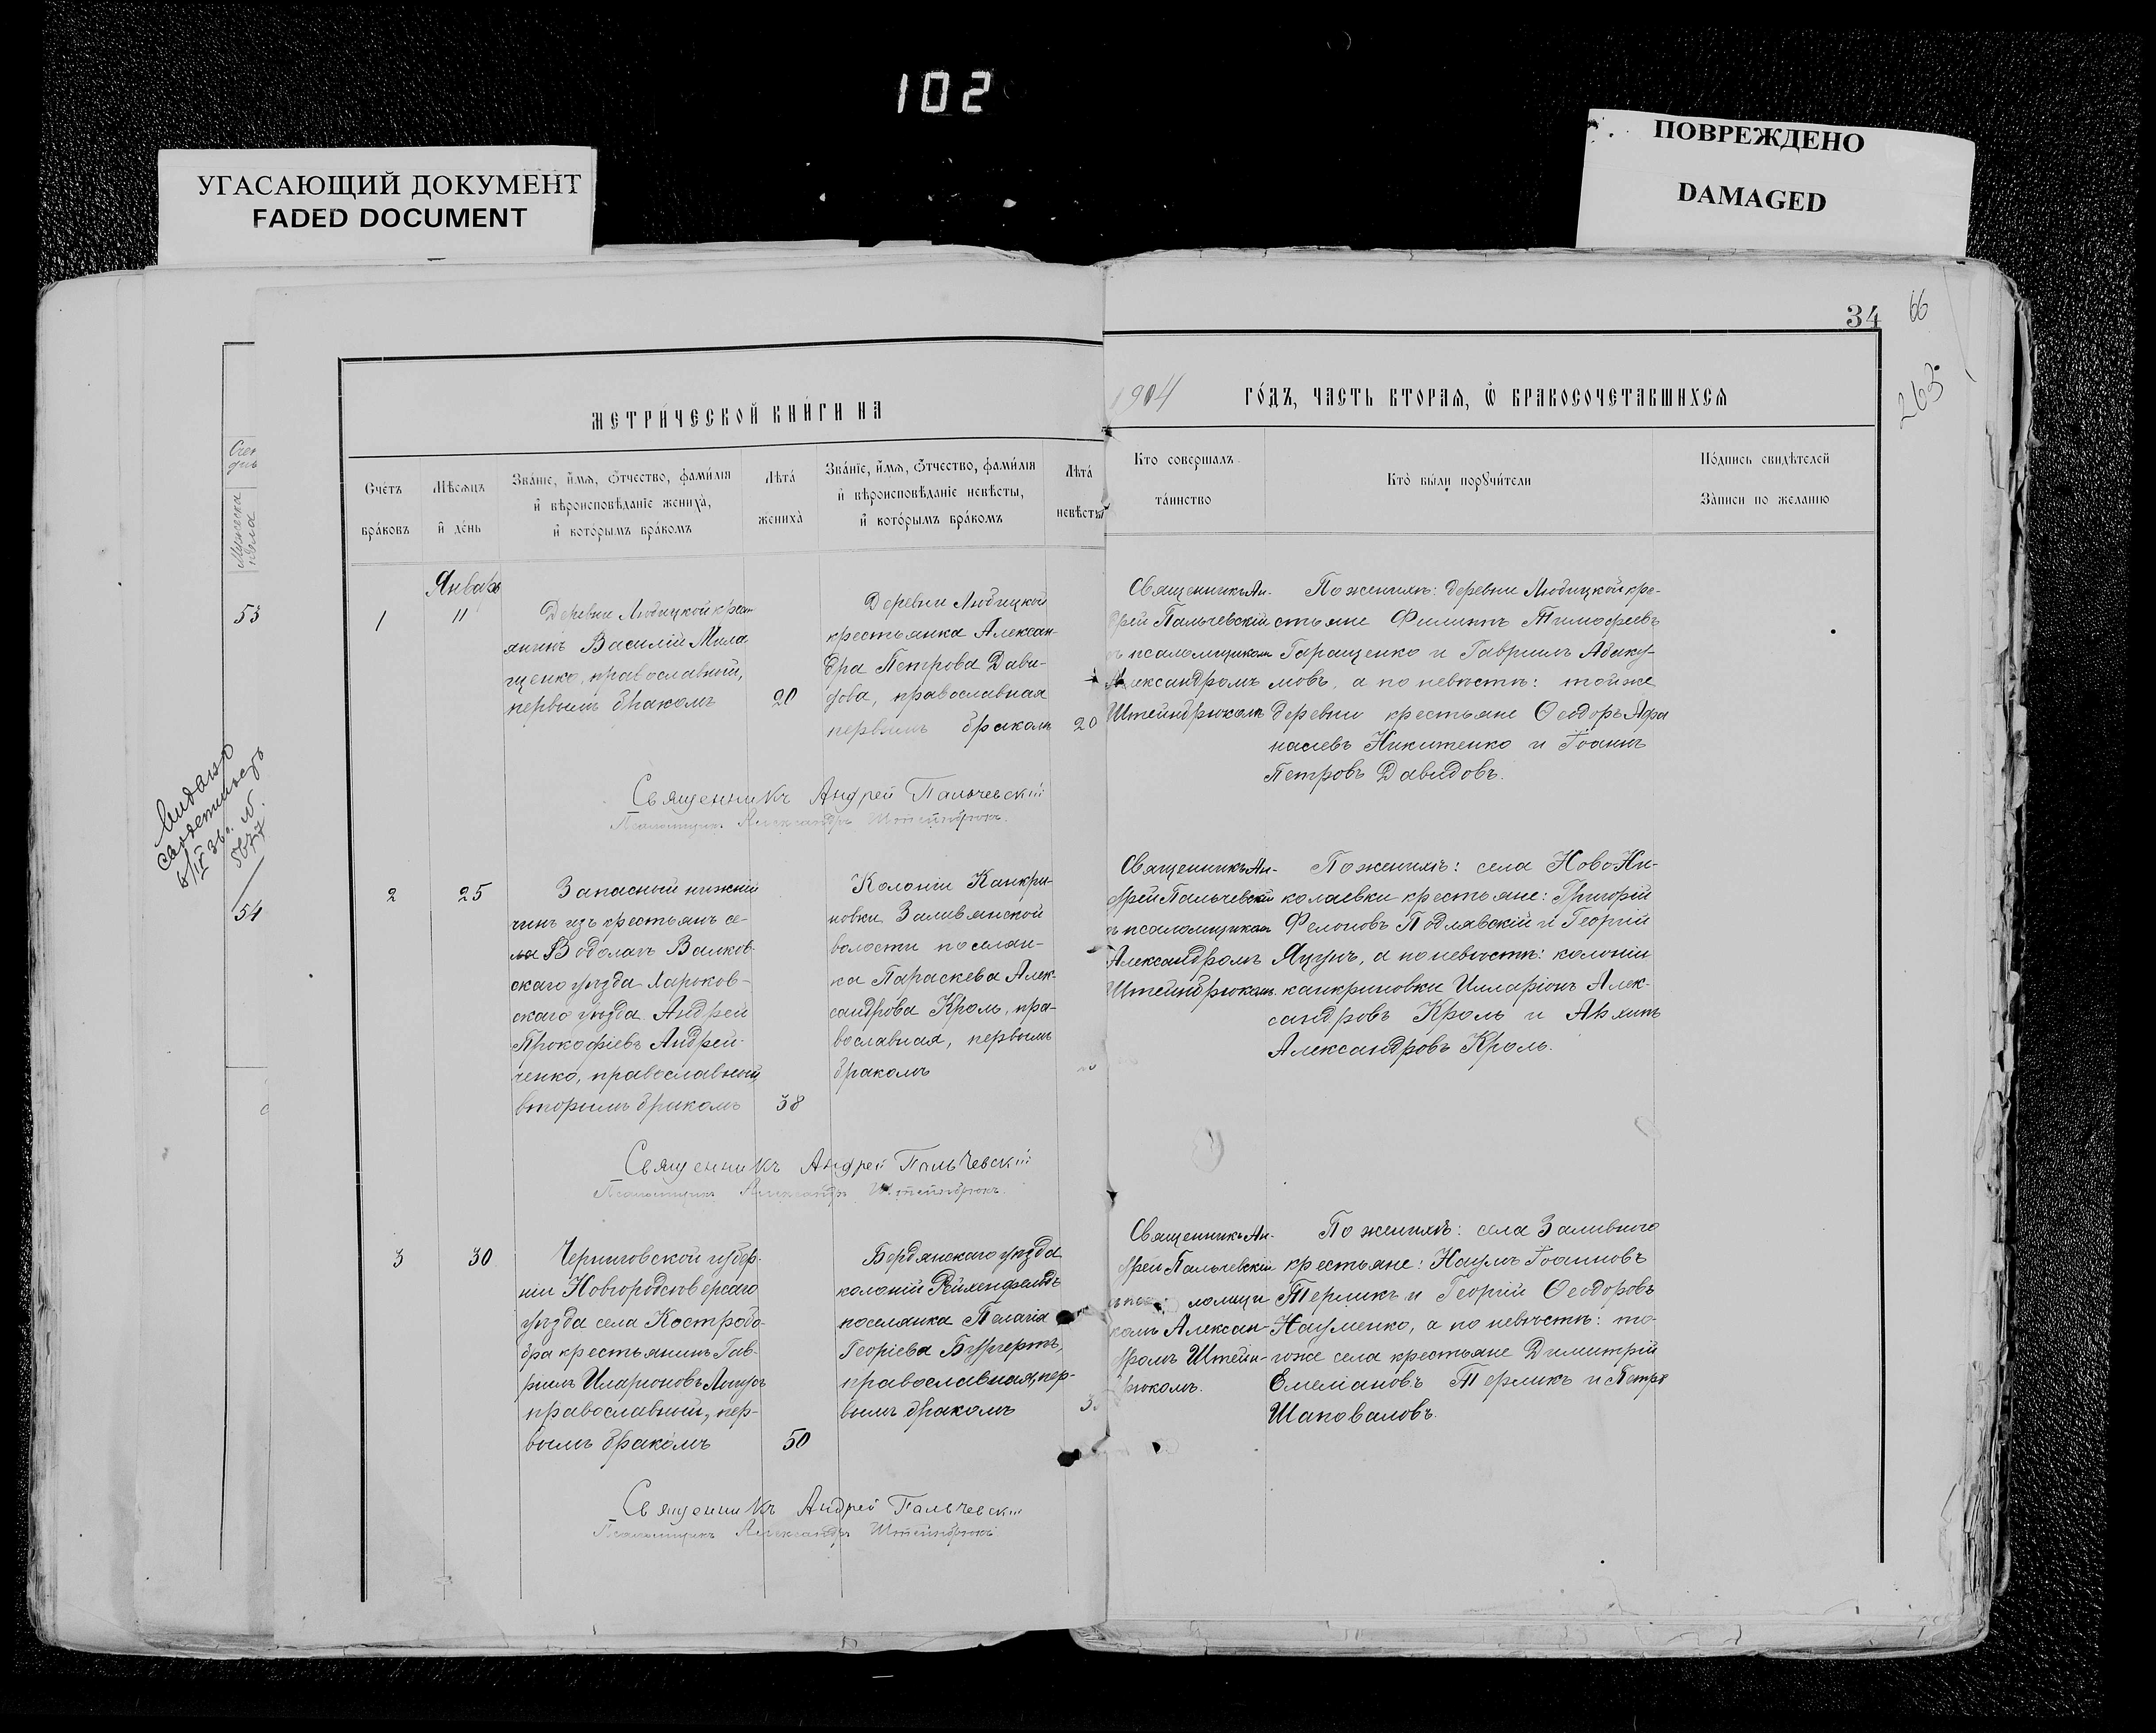 102
УГАСАЮЩИЙ ДОКУМЕНТ
FADED DOCUMENT
ПОВРЕЖДЕНО
DAMAGED
34
66
263
МЕТРИ́ЧЕСКОЙ КНИ́ГИ НА
1904 ГО́ДЪ, ЧАСТЬ ВТОРАѦ, Ѽ БРАКОСОЧЕТАВШИХСѦ
Сче́тъ
бра́ковъ
Мѣсѧцъ
и҆ де́нь
Зва́нїе, и҆́мѧ, ѻ҆́тчество, фами́лїѧ
и҆ вѣроисповѣ́данїе жениха̀,
и҆ кото́рымъ бра́комъ
Лѣта̀
жениха̀
Зва́нїе, и҆́мѧ, ѻ҆́тчество, фами́лїѧ
и҆ вѣроисповѣ́данїе невѣ́сты,
и҆ кото́рымъ бра́комъ
Лѣта̀
невѣ́сты
Кто совершалъ
та́инство
Кто̀ бы́ли порꙋчи́тели
По́дпись свидѣ́телей
За́писи по желанію
53
54
Видано
5677
Январь
1
11
Деревни Любицкой крест
янинъ Василій Мила
щенко, православный,
первымъ бракомъ
20
Деревни Любицкой
крестьянка Алексан-
дра Петрова Дави-
дова, православная
первымъ бракомъ
20
Священникъ Ан-
дрей Пальчевскій
съ псаломщикомъ
Александромъ
Штейнбрюкомъ
По женихѣ: деревни Любицкой кре-
стьяне Филиппъ Тимофеевъ
Геращенко и Гавриилъ Абаку-
мовъ, а по невѣстѣ: той же
деревни крестьяне Ѳеодоръ Афа
насіевъ Никитенко и Іоаннъ
Петровъ Давидовъ.
Священникъ Андрей Пальчевскій
Псаломщикъ Александръ Штейнбрюкъ.
2
25
Запасный нижній
чинъ изъ крестьянъ се-
ла Водолагъ Валков-
скаго уѣзда Харьков-
скаго уѣзда Андрей
Прокофіевъ Андрей-
ченко, православный
вторымъ бракомъ
38
Колоніи Канкри-
новки Заливянской
волости поселян-
ка Параскева Алек-
сандрова Кроль, пра-
вославная, первымъ
бракомъ
Священникъ Ан-
дрей Пальчевскій
съ псаломщикомъ
Александромъ
Штейнбрюкомъ.
По женихѣ: села Ново-Ни-
колаевки крестьяне: Григорій
Филоновъ Подлявскій и Георгій
Яцунъ, а по невѣстѣ: колоніи
канкриновки Илларіонъ Алек-
сандровъ Кроль и
Александровъ Кроль.
Священникъ Андрей Пальчевскій
Псаломщикъ Александръ Штейнбрюкъ.
3
30
Черниговской губер-
ніи Новгородсѣверсаго
уѣзда села Костробо-
бра крестьянинъ Гав-
ріилъ Иларіоновъ
православный, пер-
вымъ бракомъ
50
Бердянскаго уѣзда
колоній Рейхенфельдъ
поселянка Пелагія
Георгіева Бургертъ,
православная, пер-
вымъ бракомъ
3
Священникъ Ан-
дрей Пальчевскій
ломщи
комъ Алексан-
дромъ Штейн-
брюкомъ.
По женихѣ: села Заливного
крестьяне: Наумъ Іоанновъ
Терликъ и Георгій Ѳеодоровъ
Науменко, а по невѣстѣ: то-
гоже села крестьяне Димитрій
Емеліановъ Терликъ и Петръ
Шаповаловъ.
Священникъ Андрей Пальчевскій
Псаломщикъ Александръ Штейнбрюкъ